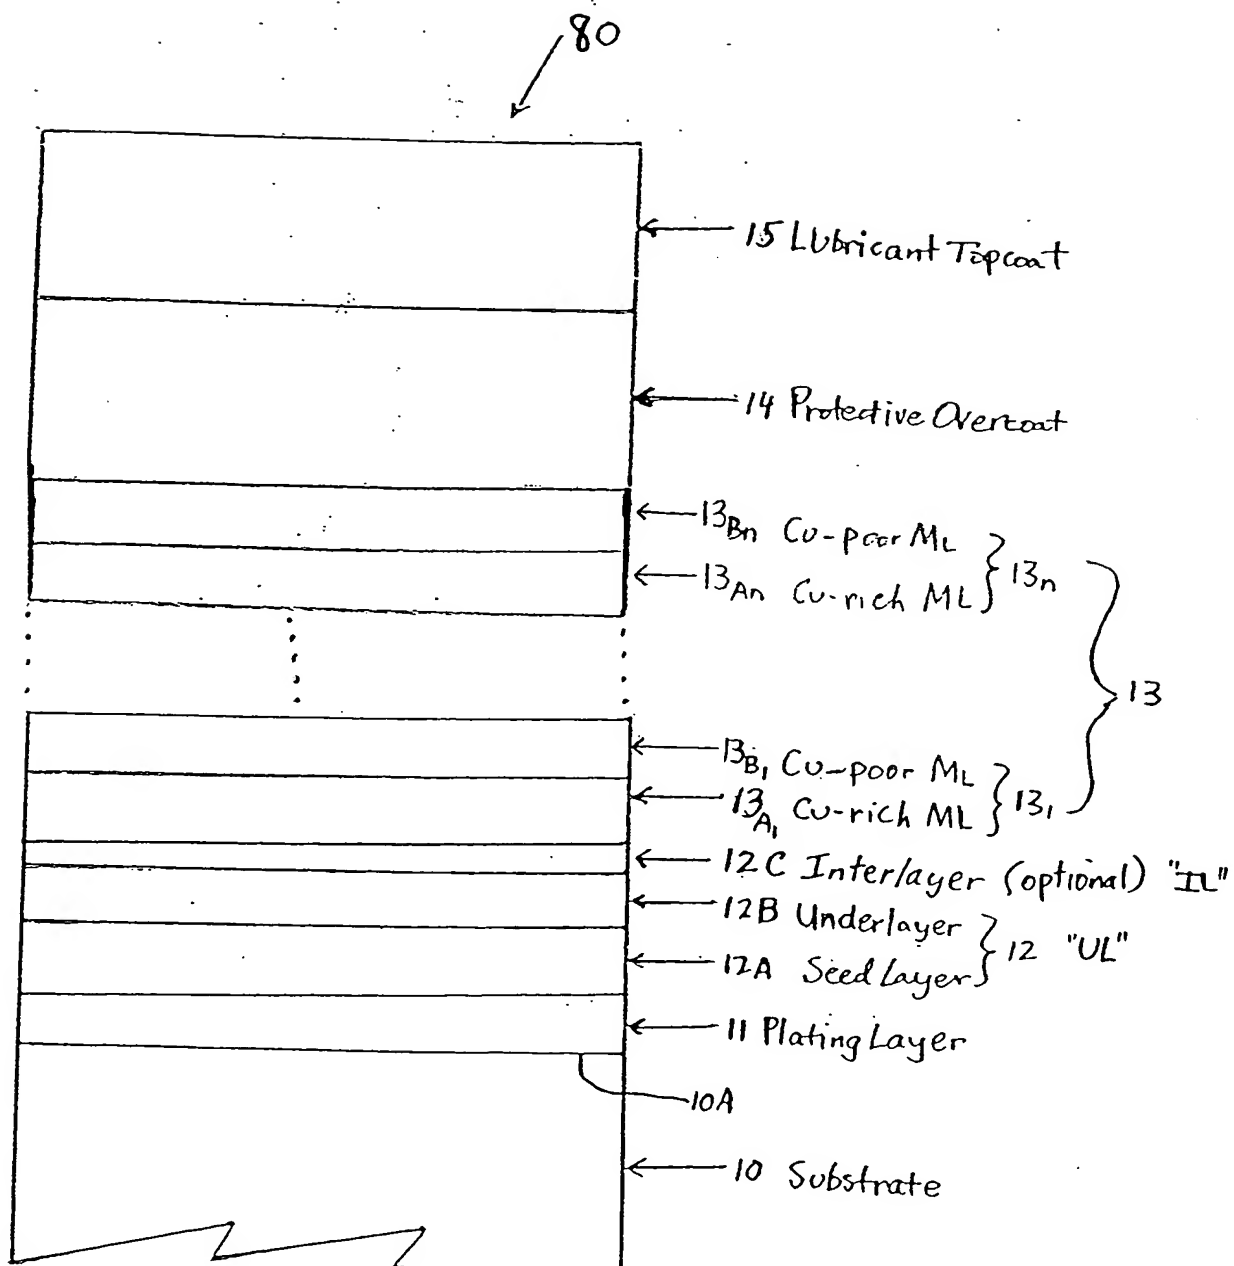 80
15 Lubricant Topcoat
14 Protective Overcoat
13Bn Cu-poor ML
13An Cu-rich ML
13n
13
13B1 Cu-poor ML
13A1 Cu-rich ML
131
12C Interlayer (optional) "IL"
12B Underlayer
12A Seed Layer
12 "UL"
11 Plating Layer
10A
10 Substrate